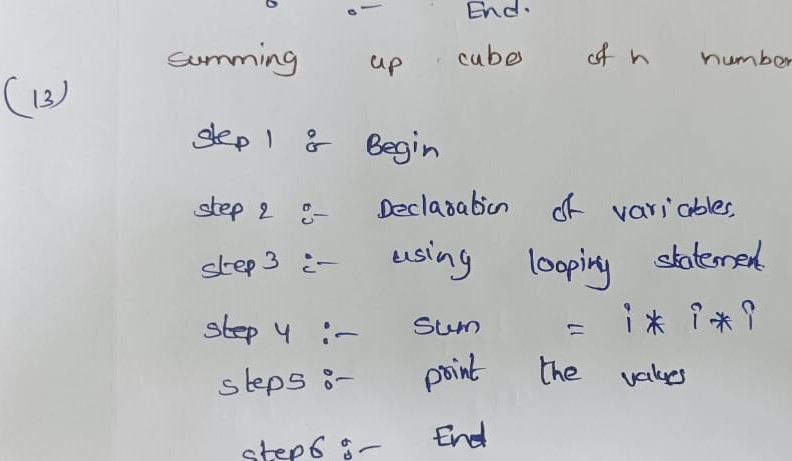 :- End.
summing up cubes of n number
(13)
step 1 :- Begin
step 2 :- Declaration of variables.
step 3 :- using looping statement
step 4 :- sum = i * i * i
step5 :- print the values
step6 :- End